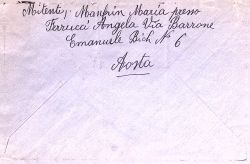 Mitente, Manfrin Maria presso
Ferrucci Angela Via Barrone
Emanuele Bich N 6
Aosta